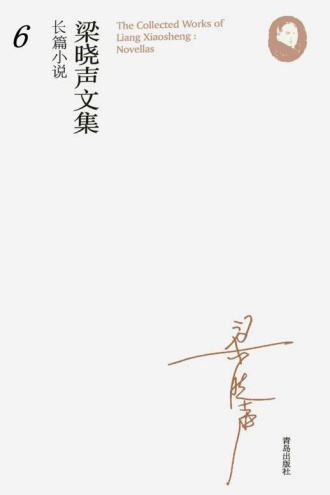 6
梁晓声文集
长篇小说
The Collected Works of
Liang Xiaosheng :
Novellas
梁晓声
青岛出版社